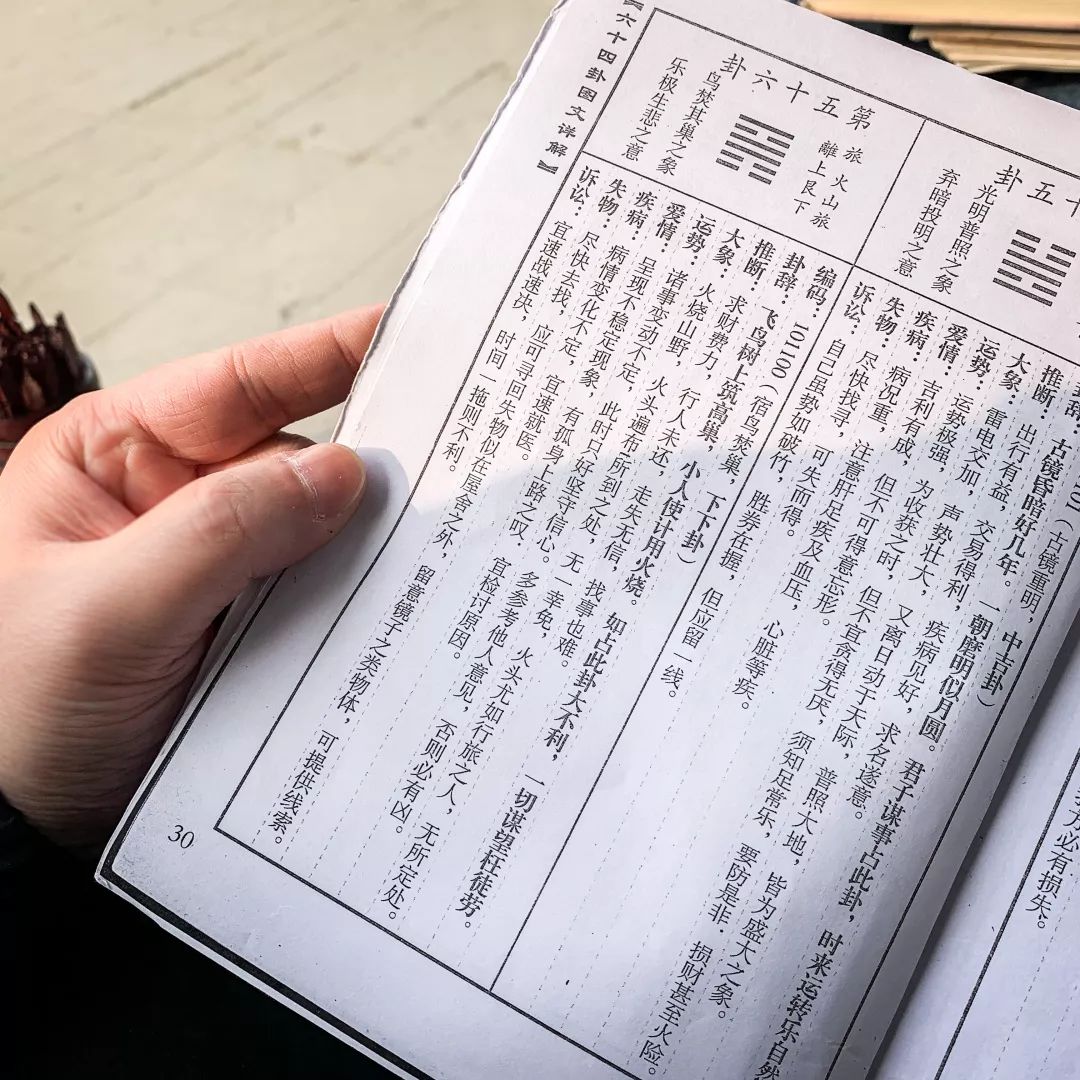 必有损失。
十五卦
光明普照之象
弃暗投明之意
（古镜重明，中吉卦）
卦辞：古镜昏暗好几年。一朝磨明似月圆。君子谋事占此卦，时来运转乐自然
推断：出行有益，交易得利，疾病见好，求名遂意。
大象：雷电交加，声势壮大，又离日动于天际，普照大地，皆为盛大之象。
运势：运势极强，为收获之时，但不宜贪得无厌，须知足常乐，要防是非．损财甚至火险。
爱情：吉利有成，但不可得意忘形。
疾病：病况重，注意肝足疾及血压，心脏等疾。
失物：尽快找寻，可失而得。
诉讼：自己虽势如破竹，胜券在握，但应留一线。
第五十六卦
旅 火山旅
離上艮下
鸟焚其巢之象
乐极生悲之意
编码：101100（宿鸟焚巢，下下卦）
卦辞：飞鸟树上筑高巢，小人使计用火烧。如占此卦大不利，一切谋望枉徒劳。
推断：求财费力，行人未还，走失无信，找事也难。
大象：火烧山野，火头遍布所到之处，无一幸免，火头尤如行旅之人，无所定处。
运势：诸事变动不定，此时只好坚守信心。多参考他人意见，否则必有凶。
爱情：呈现不稳定现象，有孤身上路之叹．宜检讨原因。
疾病：病情变化不定，宜速就医。
失物：尽快去找，应可寻回失物似在屋舍之外，留意镜子之类物体，可提供线索。
诉讼：宜速战速决，时间一拖则不利。
【六十四卦图文详解】
30